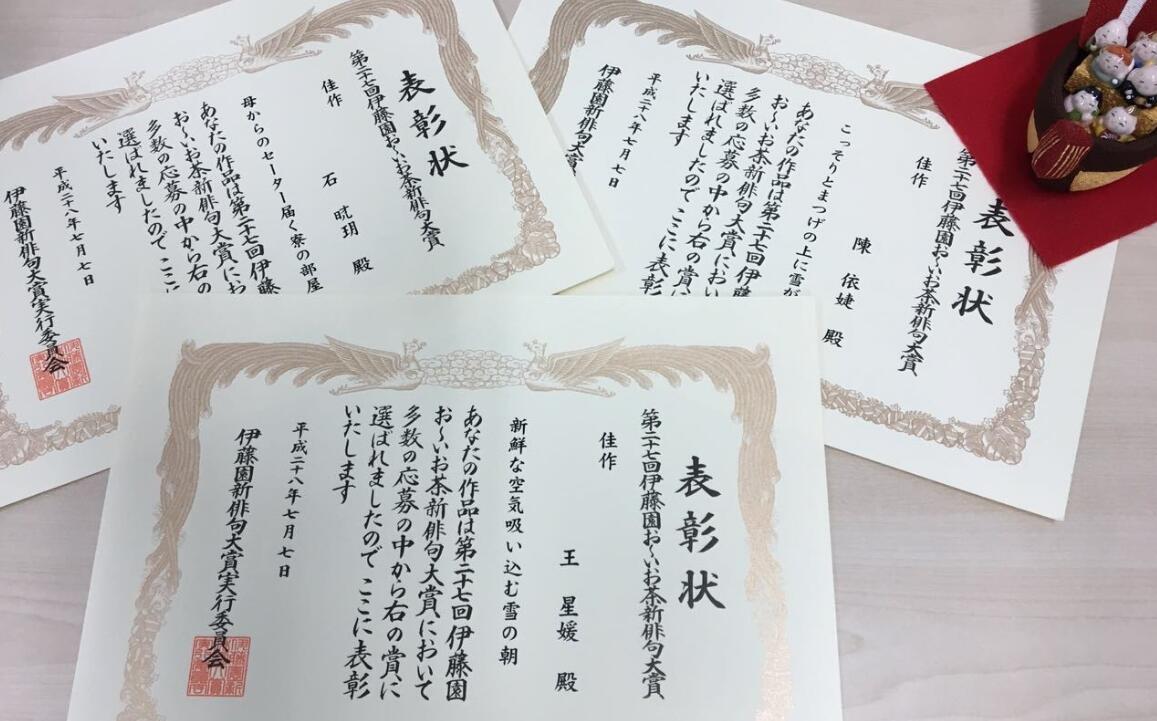 表彰状
第二十七回伊藤園お〜いお茶新俳句大賞
佳作
石 晄玥 殿
母からのセーター届く寮の部屋
あなたの作品は第二十七回伊藤
お〜いお茶新俳句大賞にお
多数の応募の中から右の
選ばれましたので ここに
いたします
平成二十八年七月七日
伊藤園新俳句大賞実行委員会
表彰状
第二十七回伊藤園お〜いお茶新俳句大賞
佳作
陳 依婕 殿
こっそりとまつげの上に雪が
あなたの作品は第二十七回伊
お〜いお茶新俳句大賞におい
多数の応募の中から右の賞に
選ばれましたので ここに表彰
いたします
平成二十八年七月七日
伊藤園新俳句大賞
表彰状
第二十七回伊藤園お〜いお茶新俳句大賞
佳作
王 星媛 殿
新鮮な空気吸い込む雪の朝
あなたの作品は第二十七回伊藤園
お〜いお茶新俳句大賞において
多数の応募の中から右の賞に
選ばれましたので ここに表彰
いたします
平成二十八年七月七日
伊藤園新俳句大賞実行委員会